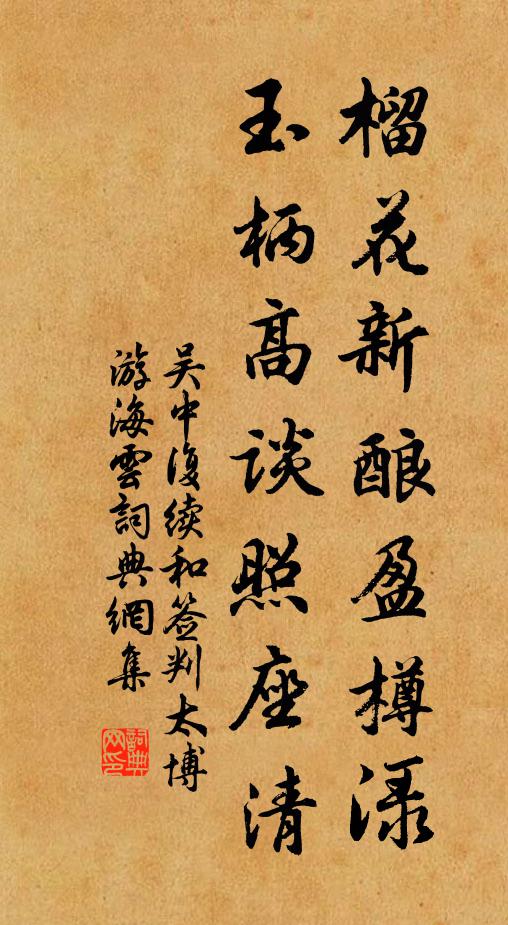 榴花新酿盈樽渌
玉柄高谈照座清
吴中復续和签判太博
游海雲詞典網集
詞典网印